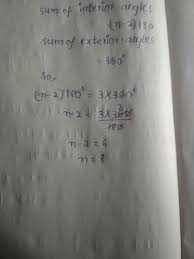 sum of interior angles
(n-2)180
sum of exterior angles
= 360°
So,
(n-2)180° = 3×360°
n-2 = 3×360
180
n-2 = 6
n = 8